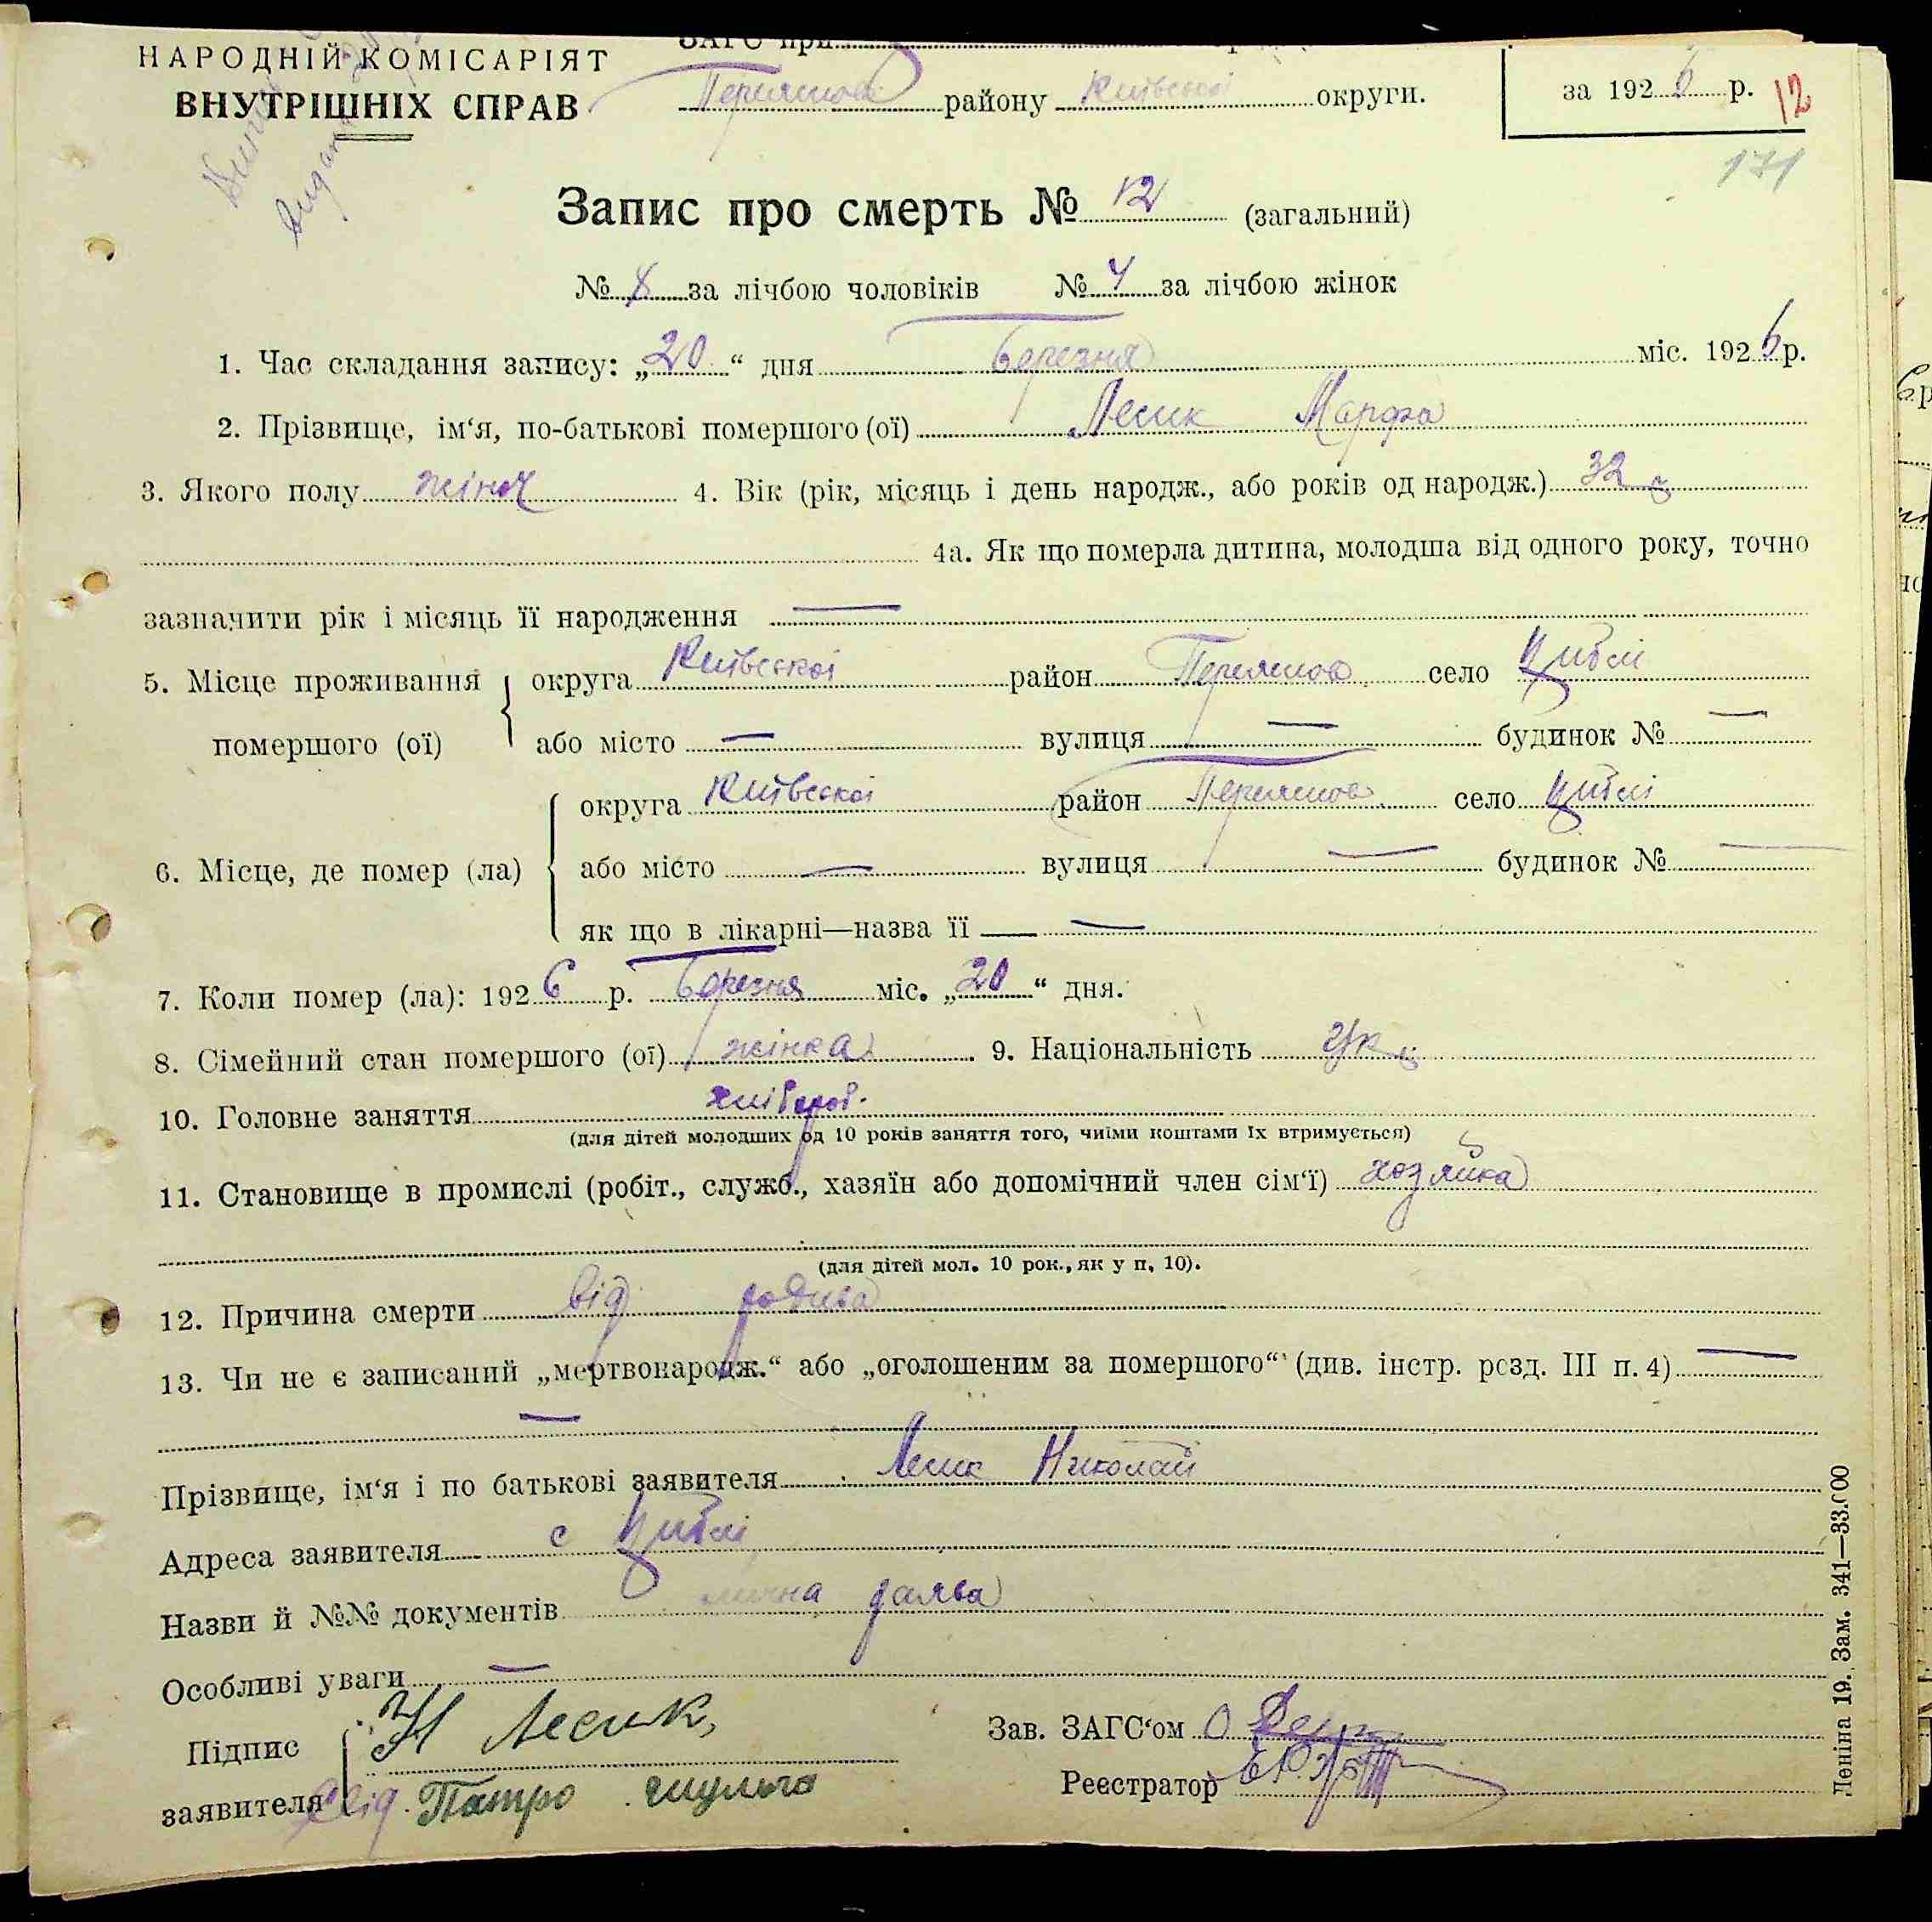 НАРОДНІЙ КОМІСАРІЯТ
ВНУТРІШНІХ СПРАВ
ЗАГС при
Переяслов району Київської округи.
за 1926 р. 12
171
Запис про смерть № 12 (загальний)
№ 8 за лічбою чоловіків № 4 за лічбою жінок
1. Час складання запису: „20“ дня березня міс. 1926 р.
2. Прізвище, ім‘я, по-батькові помершого (ої) Лесик Марфа
3. Якого полу жіноч 4. Вік (рік, місяць і день народж., або років од народж.) 32
4а. Як що померла дитина, молодша від одного року, точно
зазначити рік і місяць її народження —
5. Місце проживання помершого (ої) округа Київської район Переяслов село Циблі
або місто — вулиця — будинок № —
6. Місце, де помер (ла) округа Київської район Переяслов село Циблі
або місто — вулиця — будинок № —
як що в лікарні—назва її —
7. Коли помер (ла): 1926 р. березня міс. „20“ дня.
8. Сімейний стан помершого (ої) жінка. 9. Національність Ук
10. Головне заняття хлібороб.
(для дітей молодших од 10 років заняття того, чиїми коштами їх втримується)
11. Становище в промислі (робіт., служб., хазяїн або допомічний член сім‘ї) хозяйка
(для дітей мол. 10 рок., як у п. 10).
12. Причина смерти від родива
13. Чи не є записаний „мертвонародж.“ або „оголошеним за помершого“ (див. інстр. розд. III п. 4) —
—
Прізвище, ім‘я і по батькові заявителя Лесик Николай
Адреса заявителя с Циблі
Назви й №№ документів лична заява
Особливі уваги —
Підпис заявителя Н Лесик,
свід. Патро шульга
Зав. ЗАГС‘ом
Реєстратор
Леніна 19. Зам. 341—33.000